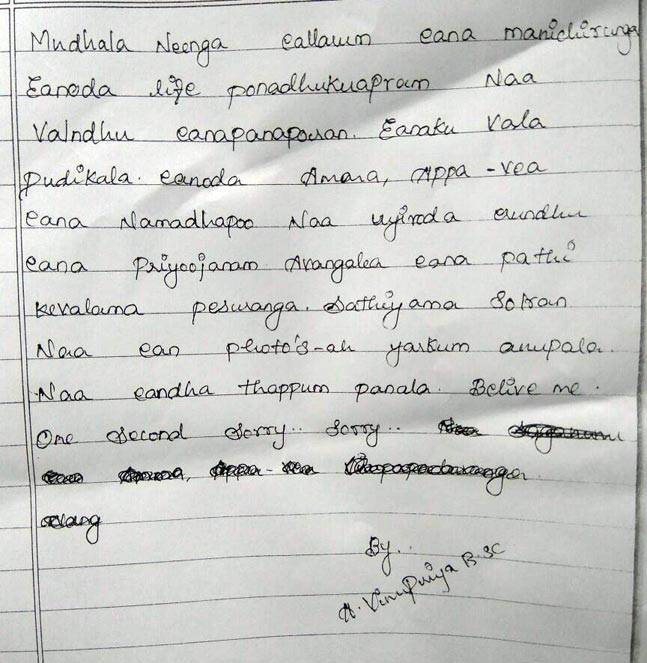 Mudhala Neenga eallarum eana manichirunga
Eanoda life ponadhukuapram Naa
Valndhu eanapanaporan. Eanaku Vala
Pudikala. eanoda Amma, Appa -vea
eana Namadhapoo Naa uyiroda erundhu
eana Priyoojanam Avangalea eana pathi
kevalama pesuranga. Sathiyama Solran
Naa ean photo's-ah yarkum anupala.
Naa eandha thappum panala. Belive me.
One Second Sorry.. Sorry..
By..
A. VinuPriya B.SC